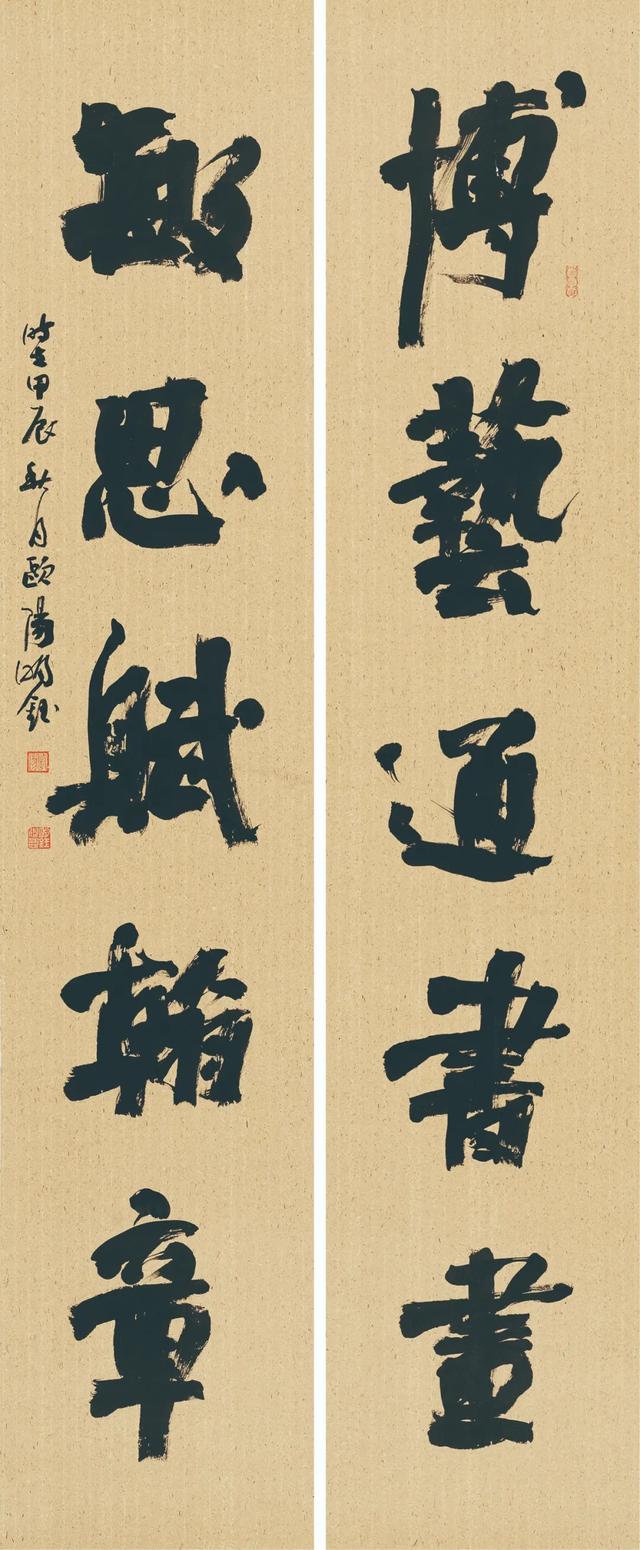 博藝通書畫
敏思賦翰章
時在甲辰秋月歐陽鴻鈺